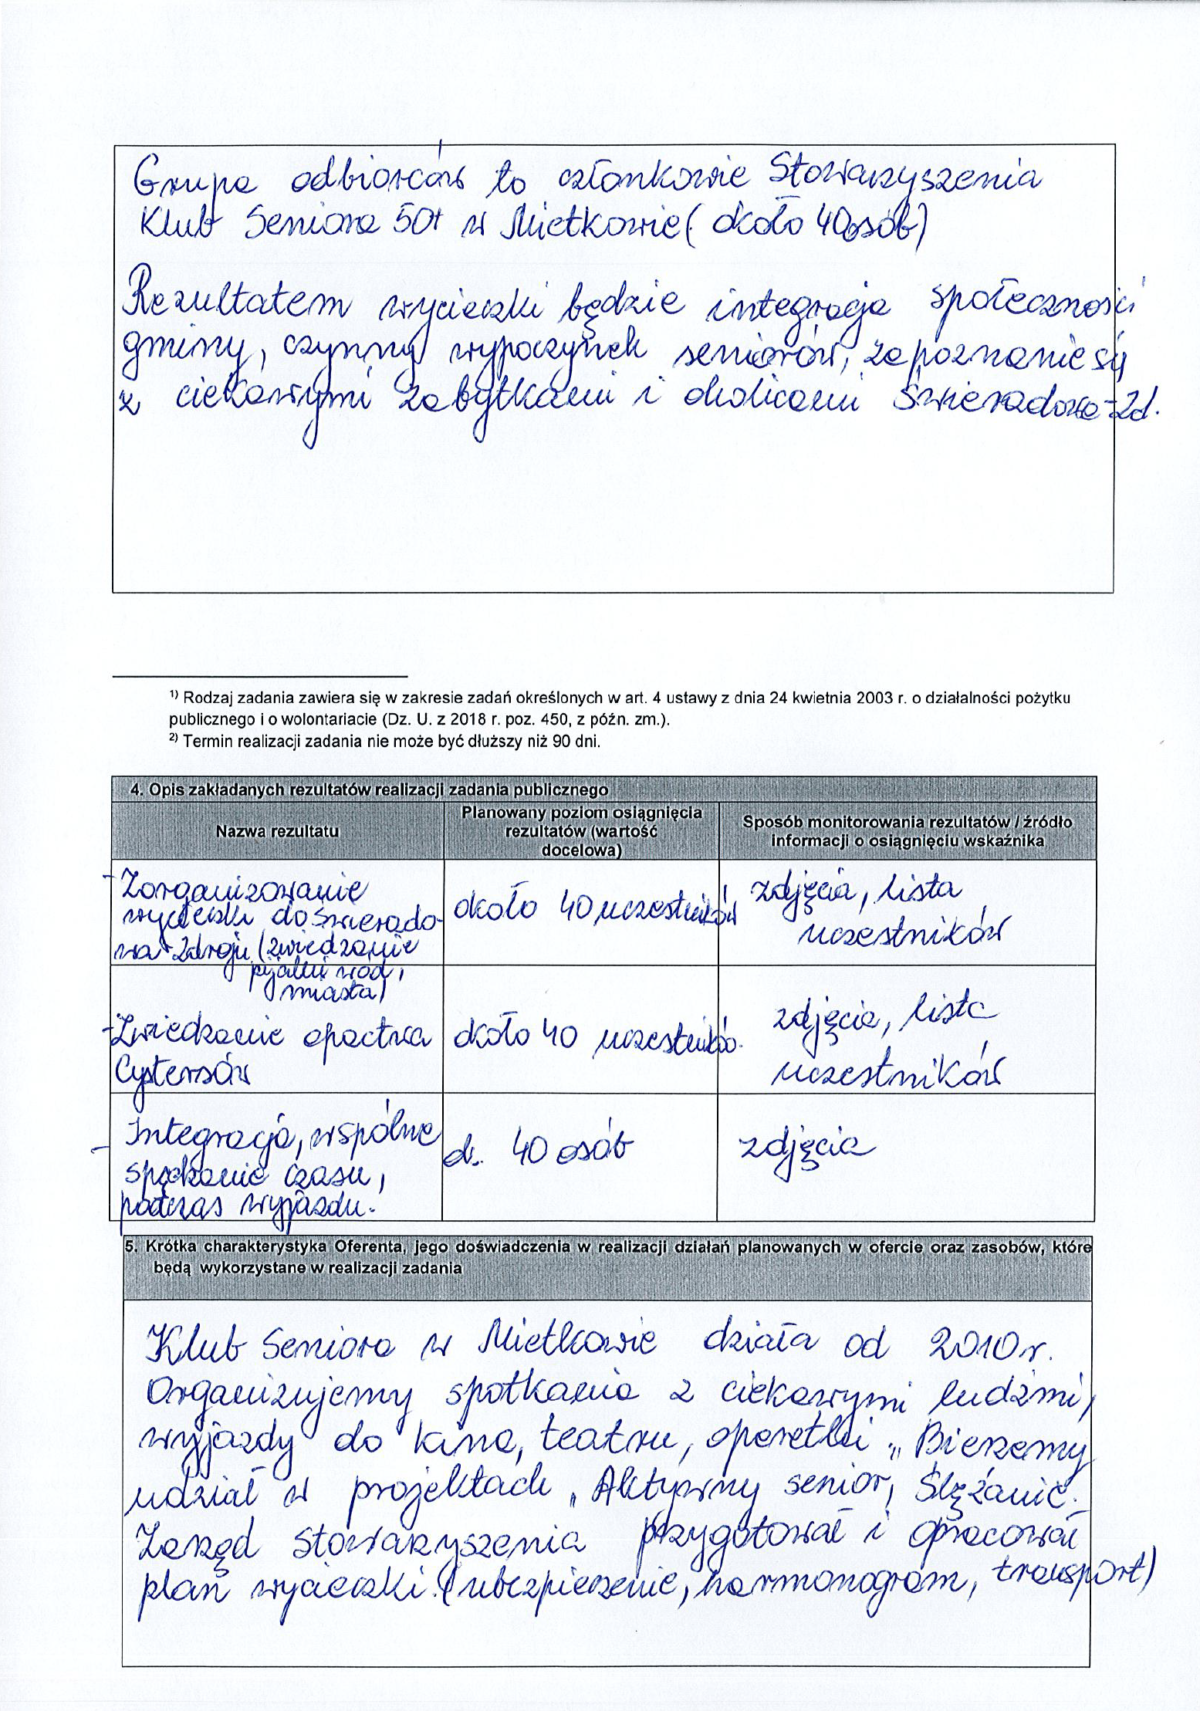 Grupa odbiorców to członkowie Stowarzyszenia
Klub Seniora 50+ w Mietkowie (około 40 osób)
Rezultatem wycieczki będzie integracja społeczności
gminy, czynny wypoczynek seniorów, zapoznanie się
z ciekawymi zabytkami i okolicami Świeradowa-Zd.
1) Rodzaj zadania zawiera się w zakresie zadań określonych w art. 4 ustawy z dnia 24 kwietnia 2003 r. o działalności pożytku
publicznego i o wolontariacie (Dz. U. z 2018 r. poz. 450, z późn. zm.).
2) Termin realizacji zadania nie może być dłuższy niż 90 dni.
4. Opis zakładanych rezultatów realizacji zadania publicznego
Nazwa rezultatu
Planowany poziom osiągnięcia
rezultatów (wartość
docelowa)
Sposób monitorowania rezultatów / źródło
informacji o osiągnięciu wskaźnika
- Zorganizowanie
wycieczki do Świerado-
wa-Zdroju (zwiedzanie
pijalni wód,
miasta)
około 40 uczestników
zdjęcia, lista
uczestników
- Zwiedzanie opactwa
Cystersów
około 40 uczestników.
zdjęcia, lista
uczestników
- Integracja, wspólne
spędzanie czasu,
podczas wyjazdu.
ok. 40 osób
zdjęcia
5. Krótka charakterystyka Oferenta, jego doświadczenia w realizacji działań planowanych w ofercie oraz zasobów, które
będą wykorzystane w realizacji zadania
Klub Seniora w Mietkowie działa od 2010 r.
Organizujemy spotkania z ciekawymi ludźmi,
wyjazdy do kina, teatru, operetki. Bierzemy
udział w projektach „Aktywny senior, Ślężanie.
Zarząd Stowarzyszenia przygotował i opracował
plan wycieczki. (ubezpieczenie, harmonogram, transport)